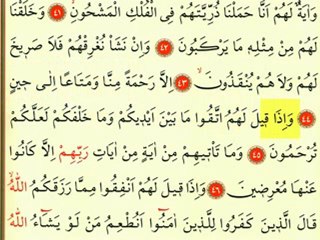 وَاٰيَةٌ لَهُمْ اَنَّا حَمَلْنَا ذُرِّيَّتَهُمْ فِي الْفُلْكِ الْمَشْحُونِۙ ﴿٤١﴾ وَخَلَقْنَا
لَهُمْ مِنْ مِثْلِه۪ مَا يَرْكَبُونَ ﴿٤٢﴾ وَاِنْ نَشَأْ نُغْرِقْهُمْ فَلَا صَر۪يخَ
لَهُمْ وَلَا هُمْ يُنْقَذُونَۙ ﴿٤٣﴾ اِلَّا رَحْمَةً مِنَّا وَمَتَاعًا اِلٰى ح۪ينٍ
﴿٤٤﴾ وَاِذَا ق۪يلَ لَهُمُ اتَّقُوا مَا بَيْنَ اَيْد۪يكُمْ وَمَا خَلْفَكُمْ لَعَلَّكُمْ
تُرْحَمُونَ ﴿٤٥﴾ وَمَا تَأْت۪يهِمْ مِنْ اٰيَةٍ مِنْ اٰيَاتِ رَبِّهِمْ اِلَّا كَانُوا
عَنْهَا مُعْرِض۪ينَ ﴿٤٦﴾ وَاِذَا ق۪يلَ لَهُمْ اَنْفِقُوا مِمَّا رَزَقَكُمُ اللّٰهُۙ
قَالَ الَّذ۪ينَ كَفَرُوا لِلَّذ۪ينَ اٰمَنُٓوا اَنُطْعِمُ مَنْ لَوْ يَشَٓاءُ اللّٰهُ